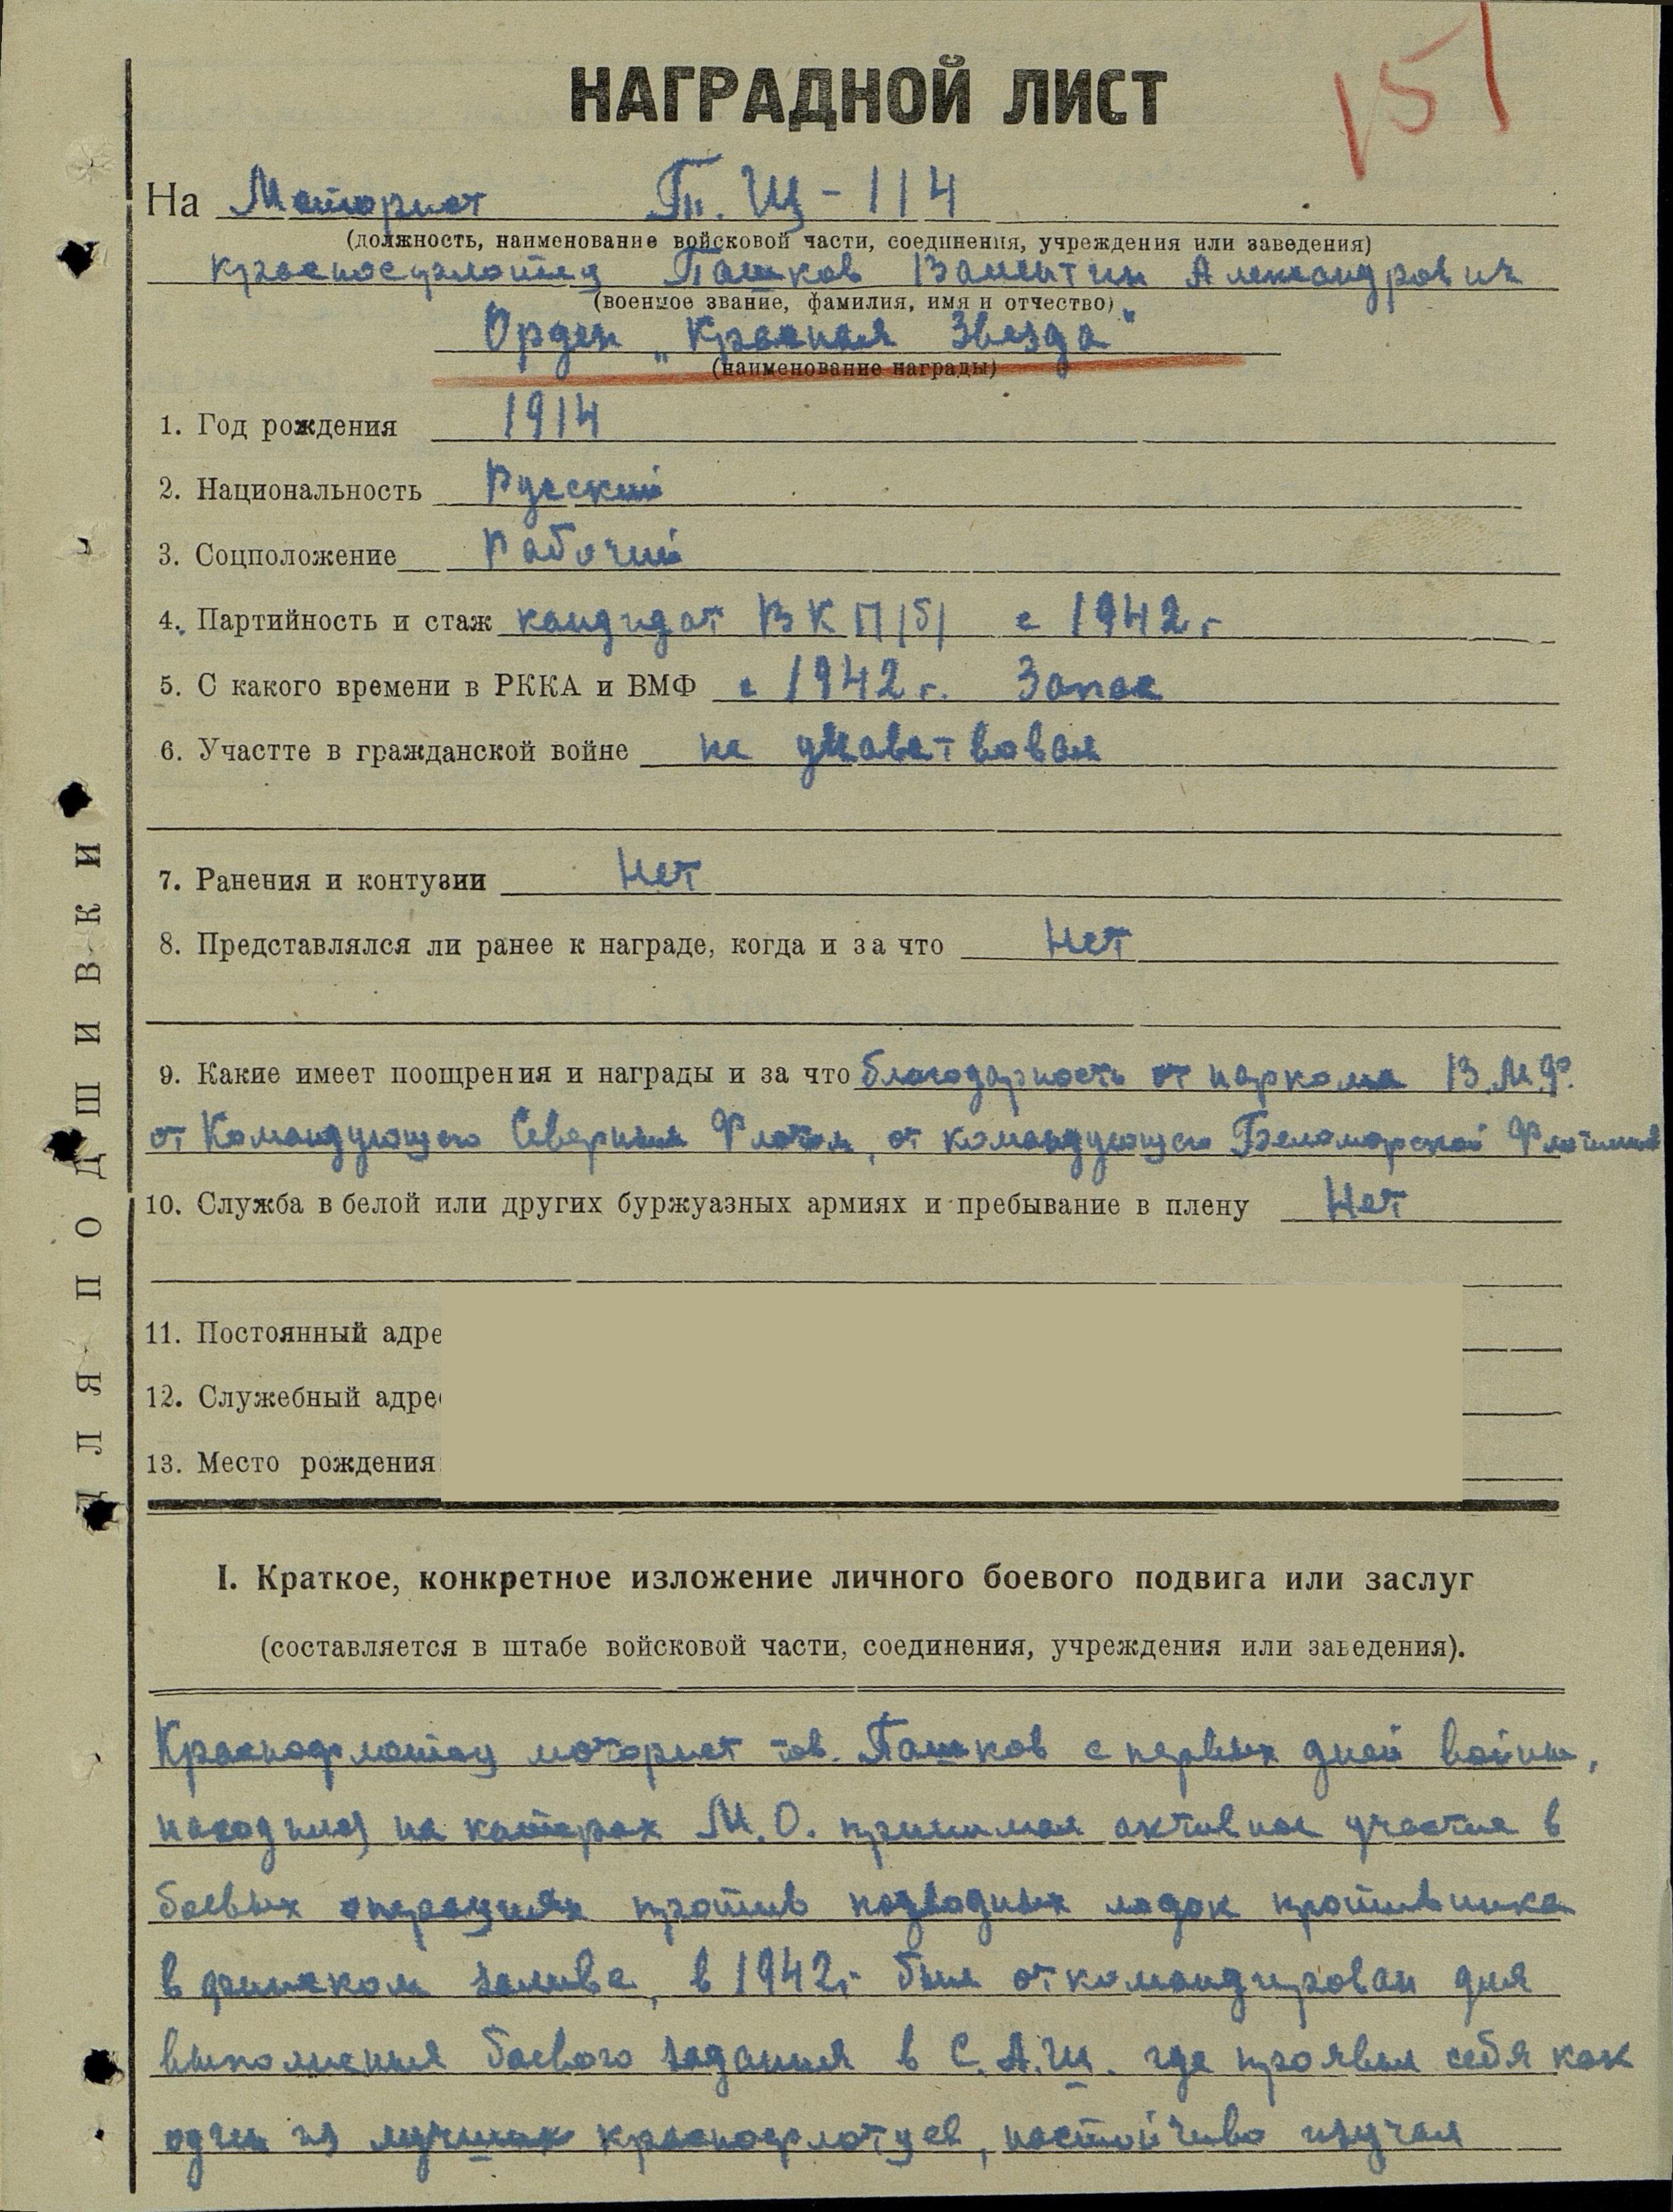 151
НАГРАДНОЙ ЛИСТ
На Моторист Т.Щ-114
(должность, наименование войсковой части, соединения, учреждения или заведения)
краснофлотец Пашков Валентин Александрович
(военное звание, фамилия, имя и отчество)
Орден „Красная Звезда"
(наименование награды)
1. Год рождения 1914
2. Национальность Русский
3. Соцположение Рабочий
4. Партийность и стаж кандидат ВКП/б/ с 1942 г
5. С какого времени в РККА и ВМФ с 1942 г. Запас
6. Участте в гражданской войне не участвовал
7. Ранения и контузии Нет
8. Представлялся ли ранее к награде, когда и за что Нет
9. Какие имеет поощрения и награды и за что благодарность от наркома В.М.Ф.
от Командующего Северным Флотом, от командующего Беломорской Флотилией
10. Служба в белой или других буржуазных армиях и пребывание в плену Нет
11. Постоянный адре
12. Служебный адрес
13. Место рождения
ДЛЯ ПОДШИВКИ
I. Краткое, конкретное изложение личного боевого подвига или заслуг
(составляется в штабе войсковой части, соединения, учреждения или заведения).
Краснофлотец моторист тов. Пашков с первых дней войны,
находился на катерах М.О. принимал активное участие в
боевых операциях против подводных лодок противника
в финском заливе, в 1942 г был откомандирован для
выполнения боевого задания в С.А.Ш. где проявил себя как
один из лучших краснофлотцев, настойчиво изучал